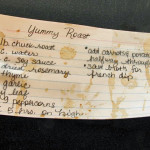 Yummy Roast
lb. chuck roast
c. water
c. soy sauce
dried rosemary
thyme
garlic
bay leaf
peppercorns
5 hrs. on high
• add carrots & potatoes
halfway through
• save broth for
french dip